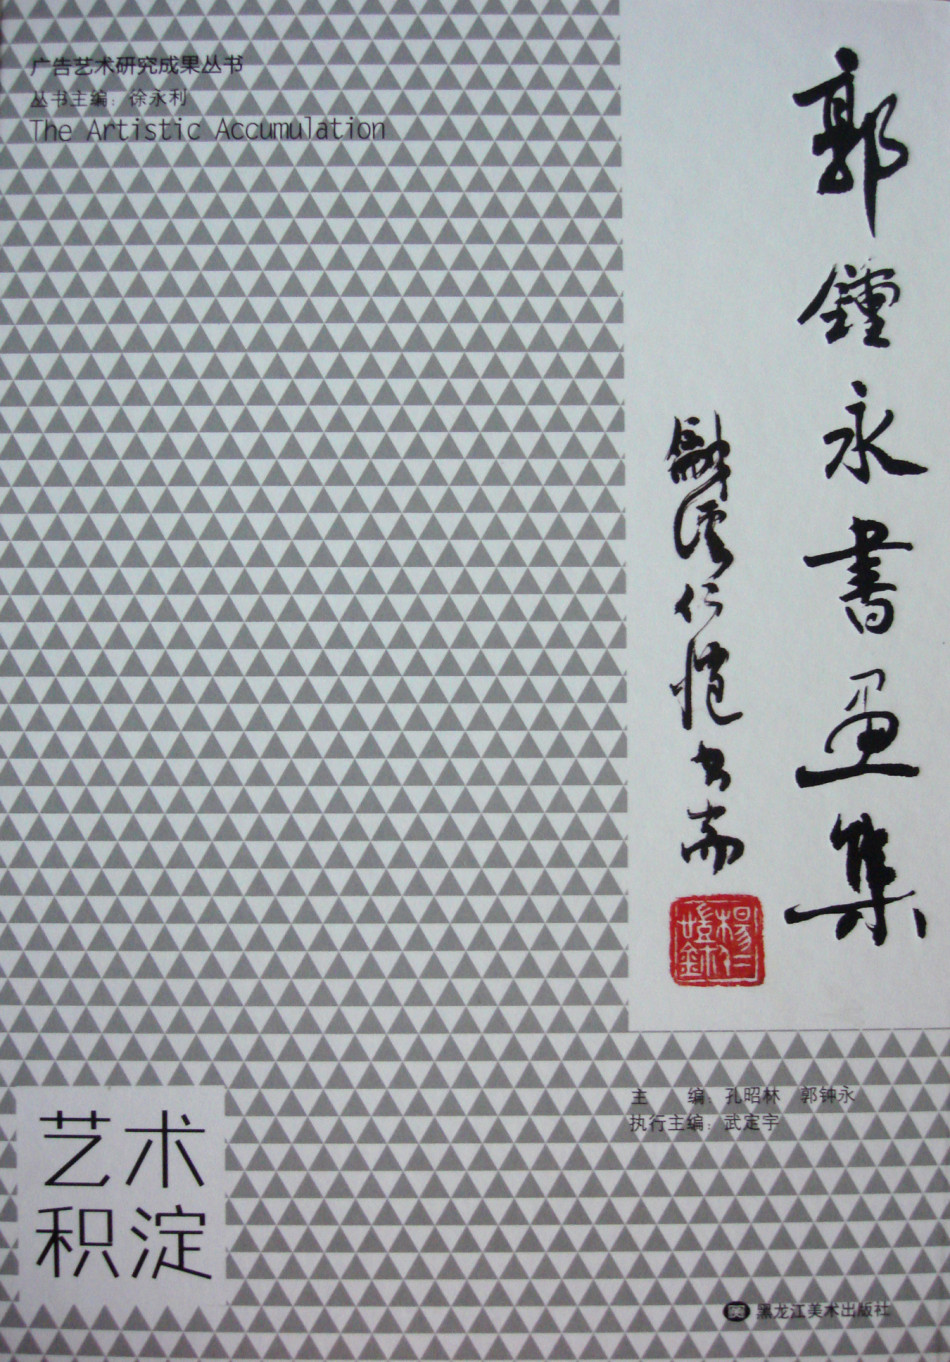 广告艺术研究成果丛书
丛书主编：徐永利
The Artistic Accumulation
郭鍾永書畫集
龢溪仁愷书耑
主　　编：孔昭林　郭钟永
执行主编：武定宇
艺术
积淀
黑龙江美术出版社